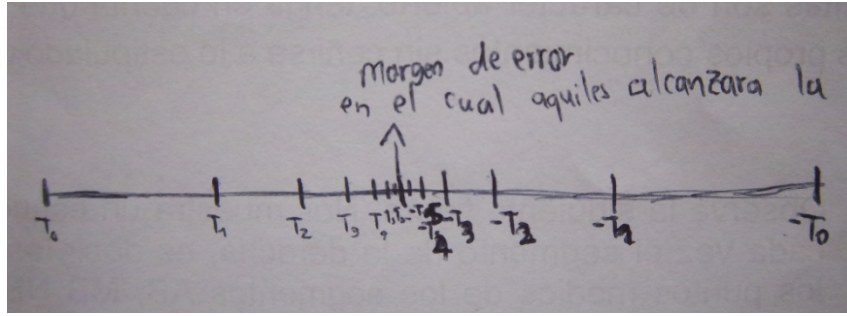 margen de error
en el cual aquiles alcanzara la
T₀ T₁ T₂ T₃ T₄ -T₃ -T₂ -T₁ -T₀